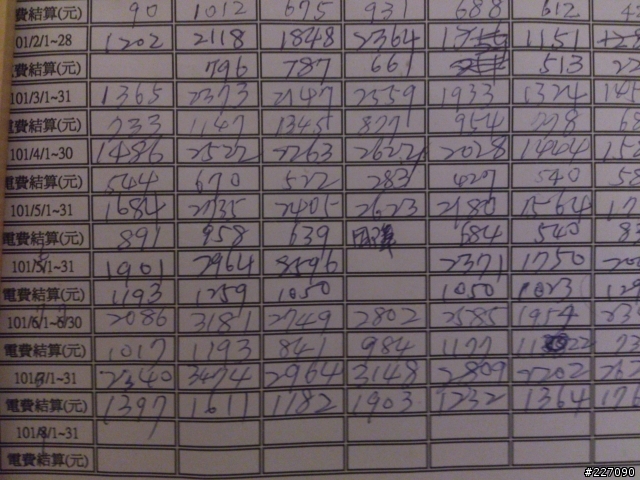 費結算(元) 90 1012 675 931 688 612
01/2/1~28 1202 2118 1848 2364 1151
電費結算(元) 796 787 661 513 22
101/3/1~31 1365 2373 2147 2559 1933 1324 145
電費結算(元) 733 1147 1345 877 954 778 68
101/4/1~30 1486 2522 2263 2622 2028 1444 158
電費結算(元) 544 670 522 283 427 540 58
101/5/1~31 1684 2735 2405 2623 2180 1564 17
電費結算(元) 891 958 639 684 540 83
101/5/1~31 1901 2964 2596 2371 1750 20
電費結算(元) 1193 1259 1050 1050 1023 129
101/6/1~6/30 2086 3181 2749 2802 2585 1954 23
電費結算(元) 1017 1193 841 984 1177 73
101/7/1~31 2340 3474 2964 3148 2809 2202 262
電費結算(元) 1397 1611 1182 1903 1232 1364 176
101/8/1~31
電費結算(元)
#227090